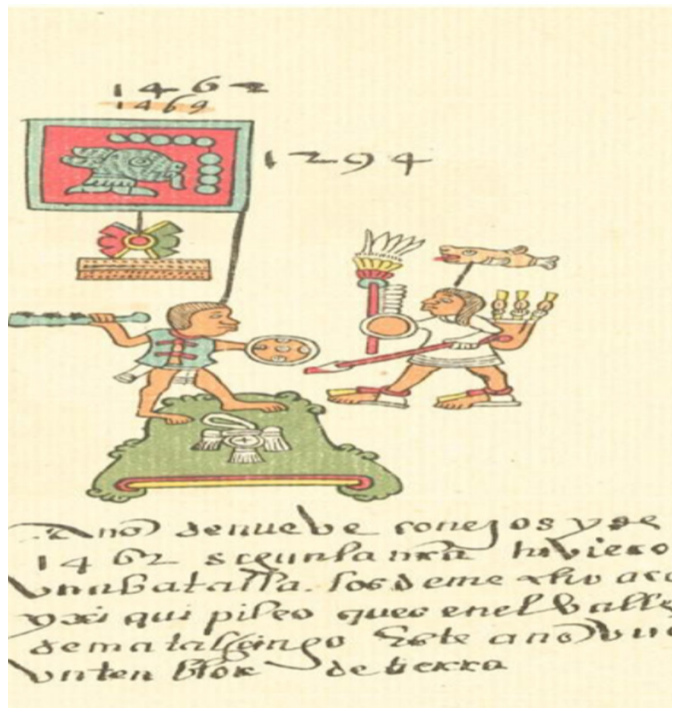 1462
1469
1294
Año de nueve conejos y de
1462 segun la nra huviero
una batalla los de me
y xi qui pilco ques en el valle
de matalçingo Este año huvo
un ten blor de tierra